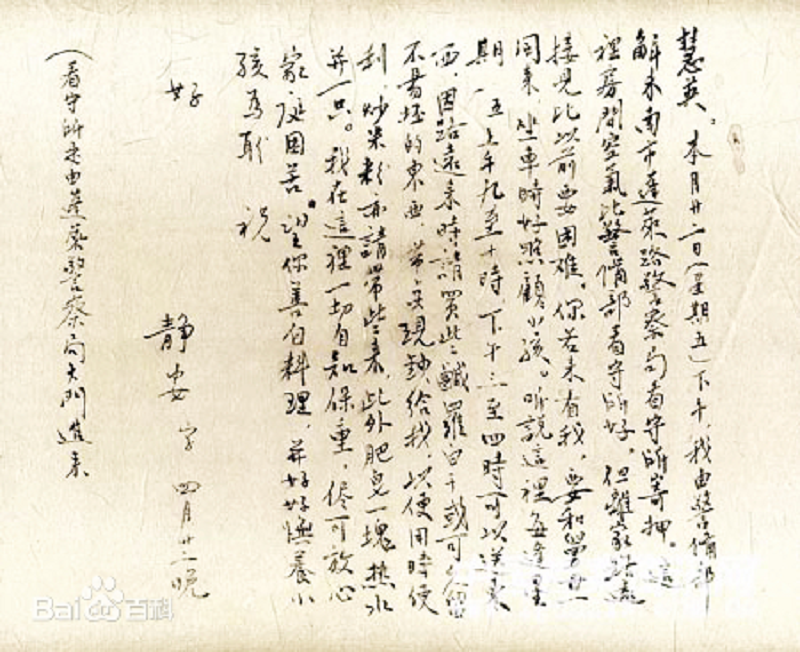 慧英。本月廿二日（星期五）下午，我由警備部
解来南市蓬萊路警察局看守所寄押。這
裡房間空氣比警備部看守所好，但離家路遠
接見比以前要困難。你若来看我，要和
同来，坐車時好照顧小孩。听說這裡每逢星
期一、五上午九至十時下午三至四時可以送東
西，因路遠来時請買些鹹羅白干或可久留
不易坏的東西，帶些現鈔給我，以便用時便
利，炒米粉亦請帶些来，此外肥皂一塊热水
并一只。我在這裡一切自知保重，儘可放心
家庭困苦。望你善自料理，并好好撫養小
孩為盼 祝
好
靜安字 四月廿二晚
（看守所是由蓬萊警察局大門進来
Bai 百科